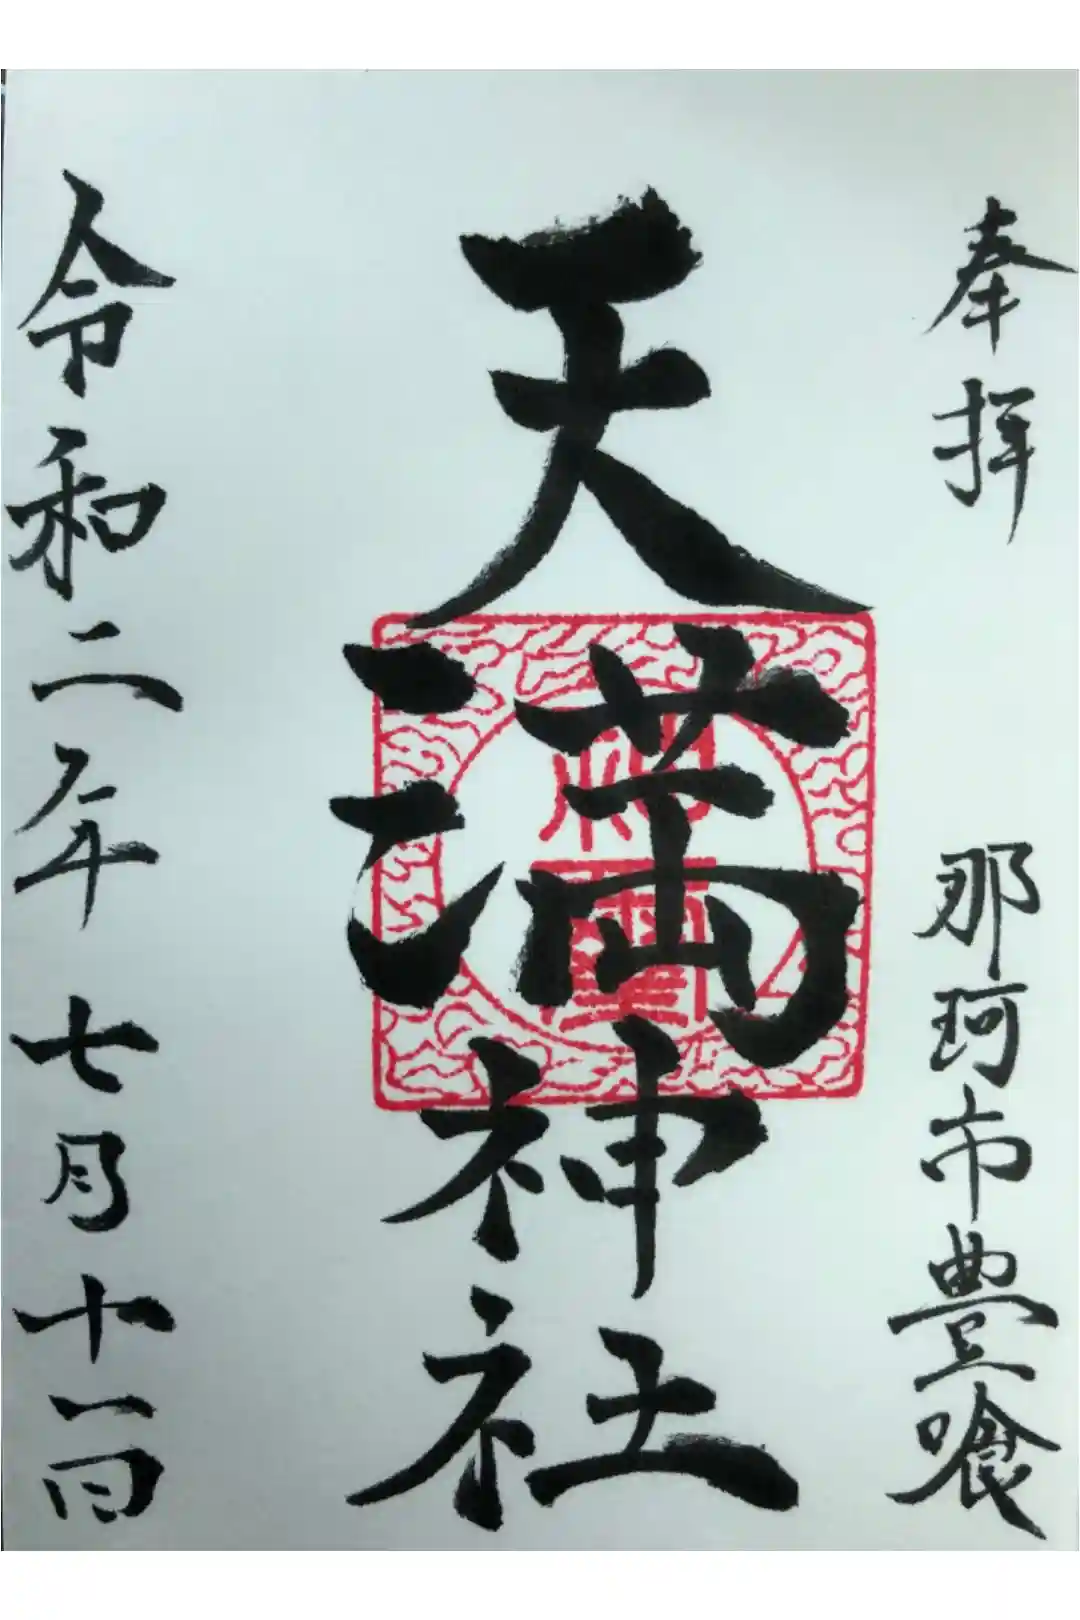 奉拝
那珂市豊喰
天満神社
令和二年七月十一日